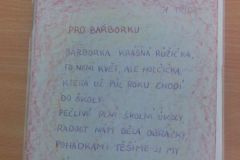 PRO BARBORKU
BARBORKA KRÁSNÁ RŮŽIČKA,
TO NENÍ KVĚT, ALE HOLČIČKA,
KTERÁ UŽ PŮL ROKU CHODÍ
DO ŠKOLY.
PEČLIVĚ PLNÍ ŠKOLNÍ ÚKOLY,
RADOST NÁM DĚLÁ OBRÁZKY,
POHÁDKAMI TĚŠÍME JI MY